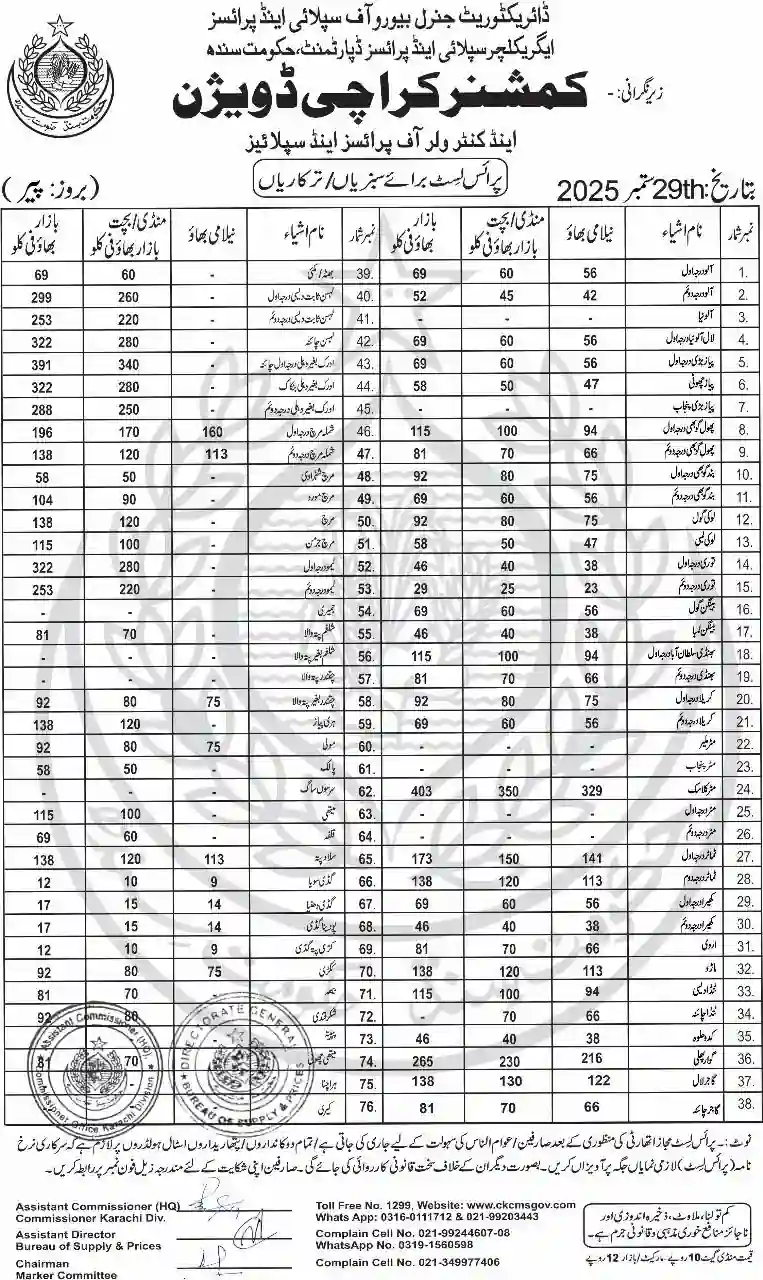 ڈائریکٹوریٹ جنرل بیورو آف سپلائی اینڈ پرائسز
ایگریکلچر سپلائی اینڈ پرائسز ڈپارٹمنٹ، حکومت سندھ
زیر نگرانی: - کمشنر کراچی ڈویژن
اینڈ کنٹرولر آف پرائسز اینڈ سپلائیز
بتاریخ: 29th ستمبر 2025 پرائس لسٹ برائے سبزیاں/ترکاریاں (بروز: پیر)
نمبر شمار نام اشیاء نیلامی بھاؤ منڈی/بچت بازار بھاؤ فی کلو بازار بھاؤ فی کلو نمبر شمار نام اشیاء نیلامی بھاؤ منڈی/بچت بازار بھاؤ فی کلو بازار بھاؤ فی کلو
1. آلو درجہ اول 56 60 69 39. بھٹہ/مکئی - 60 69
2. آلو درجہ دوئم 42 45 52 40. لہسن ثابت دیسی درجہ اول - 260 299
3. آلو نیا - - - 41. لہسن ثابت دیسی درجہ دوئم - 220 253
4. لال آلو نیا درجہ اول 56 60 69 42. لہسن چائنہ - 280 322
5. پیاز بڑی درجہ اول 56 60 69 43. ادرک بغیر دھلی درجہ اول چائنہ - 340 391
6. پیاز چھوٹی 47 50 58 44. ادرک بغیر دھلی بنکاک - 280 322
7. پیاز بڑی پنجاب - - - 45. ادرک بغیر دھلی درجہ دوئم - 250 288
8. پھول گوبھی درجہ اول 94 100 115 46. شملہ مرچ درجہ اول 160 170 196
9. پھول گوبھی درجہ دوئم 66 70 81 47. شملہ مرچ درجہ دوئم 113 120 138
10. بند گوبھی درجہ اول 75 80 92 48. مرچ - 50 58
11. بند گوبھی درجہ دوئم 56 60 69 49. مرچ - 90 104
12. لوکی گول 75 80 92 50. مرچ - 120 138
13. لوکی لمبی 47 50 58 51. مرچ - 100 115
14. توری درجہ اول 38 40 46 52. لیمو درجہ اول - 280 322
15. توری درجہ دوئم 23 25 29 53. لیمو درجہ دوئم - 220 253
16. بینگن گول 56 60 69 54. - - -
17. بینگن لمبا 38 40 46 55. شلغم پتہ والا - 70 81
18. بھنڈی سلطان آباد درجہ اول 94 100 115 56. شلغم بغیر پتہ والا - - -
19. بھنڈی درجہ دوئم 66 70 81 57. چقندر پتہ والا - - -
20. کریلا درجہ اول 75 80 92 58. چقندر بغیر پتہ والا 75 80 92
21. کریلا درجہ دوئم 56 60 69 59. ہری پیاز - 120 138
22. مٹر ملیر - - - 60. مولی 75 80 92
23. مٹر پنجاب - - - 61. پالک - 50 58
24. مٹر کلاسک 329 350 403 62. سرسوں ساگ - - -
25. مٹر درجہ اول - - - 63. میتھی - 100 115
26. مٹر درجہ دوئم - - - 64. قلفہ - 60 69
27. ٹماٹر درجہ اول 141 150 173 65. سلاد پتہ 113 120 138
28. ٹماٹر درجہ دوم 113 120 138 66. گڈی سویا 9 10 12
29. کھیرا درجہ اول 56 60 69 67. گڈی دھنیا 14 15 17
30. کھیرا درجہ دوئم 38 40 46 68. پودینا گڈی 14 15 17
31. اروی 66 70 81 69. کڑی پتہ گڈی 9 10 12
32. مارو 113 120 138 70. ککڑی 75 80 92
33. ٹنڈا دیسی 94 100 115 71. - 70 81
34. ٹنڈا چائنہ 66 70 - 72. شکر قندی 80 92
35. کدو حلوہ 38 40 46 73.
36. گوار پھلی 216 230 265 74. میتھی چھوٹی 70 81
37. گاجر لال 122 130 138 75. ہرا چنا
38. گاجر چائنہ 66 70 81 76. کیری
Assistant Commissioner (HQ) Commissioner Office Karachi Division
DIRECTORATE GENERAL BUREAU OF SUPPLY & PRICES
نوٹ :۔ پرائس لسٹ مجاز اتھارٹی کی منظوری کے بعد صارفین/عوام الناس کی سہولت کے لیے جاری کی جاتی ہے/تمام دوکانداروں/پتھاریداروں/اسٹال ہولڈروں پر لازم ہے کہ سرکاری نرخ
نامہ (پرائس لسٹ) لازمی نمایاں جگہ پر آویزاں کریں۔ بصورت دیگر ان کے خلاف سخت قانونی کارروائی کی جائے گی۔ صارفین اپنی شکایت کے لئے مندرجہ ذیل فون نمبر پر رابطہ کریں۔
Assistant Commissioner (HQ)
Commissioner Karachi Div.
Assistant Director
Bureau of Supply & Prices
Chairman
Marker Committee
Toll Free No. 1299, Website: www.ckcmsgov.com
Whats App: 0316-0111712 & 021-99203443
Complain Cell No. 021-99244607-08
WhatsApp No. 0319-1560598
Complain Cell No. 021-349977406
کم تولنا، ملاوٹ، ذخیرہ اندوزی اور
ناجائز منافع خوری مذہبی و قانونی جرم ہے۔
قیمت منڈی گیٹ 10 روپے، مارکیٹ/بازار 12 روپے